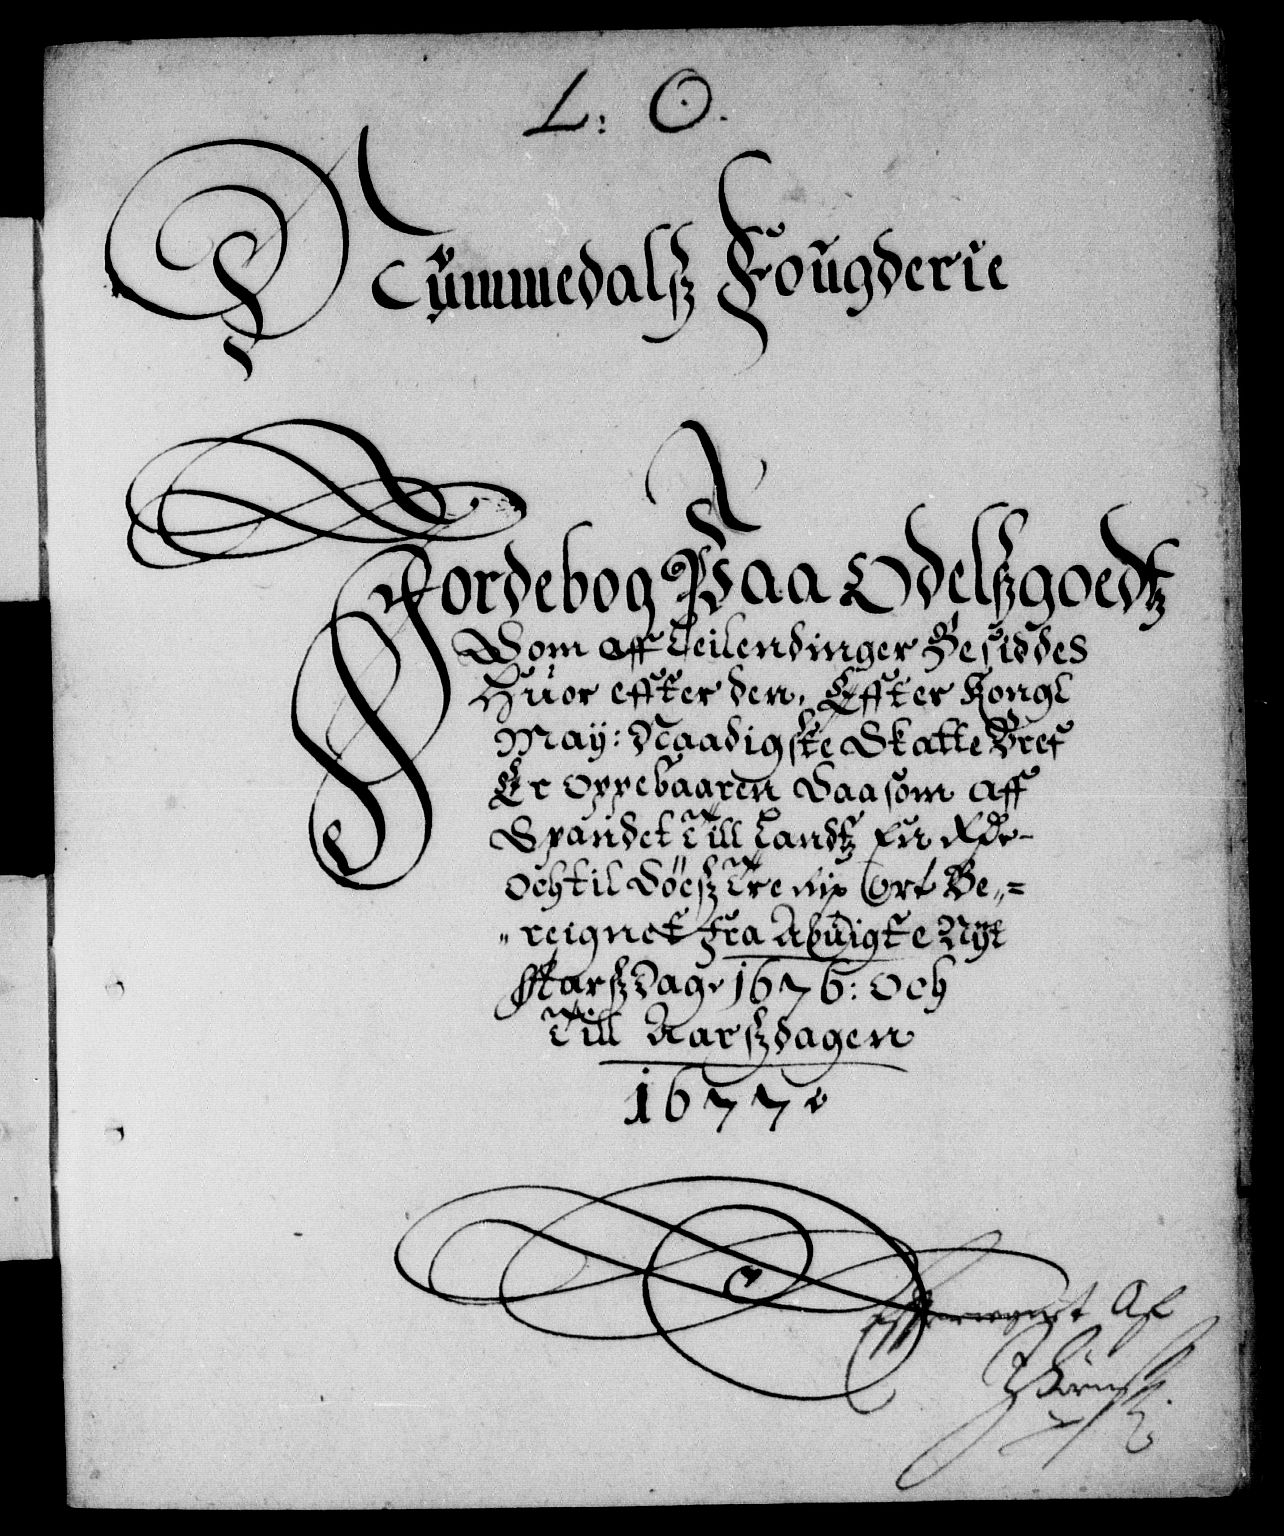 L: O.
Nummedalß Fougderie
Jordebog Paa Odelsgoedß
Som aff Leilendinger Besiddes
Huor effter den, Effter Kongl
May: Naadigste Skatte Bref
Er Oppebaaren Saasom aff
Spandet Till Landtz En Rdr
Och til Söesß Tre Ort Be-
reignet Fra Abuigte Nyt
Aarßdag 1676: Och
Till Aarßdagen
1677
Af